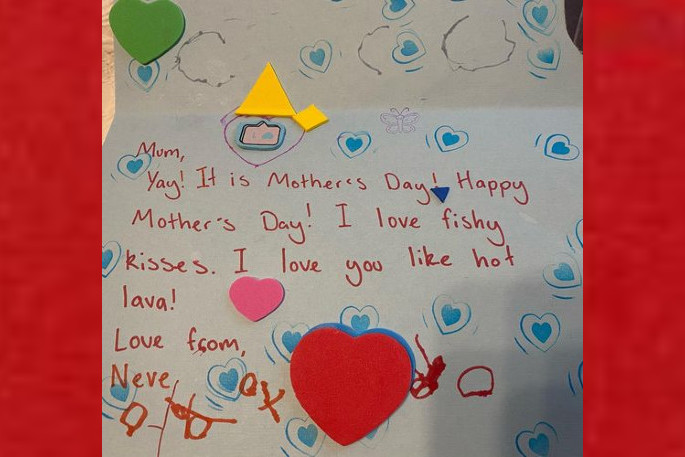 Mum,
Yay! It is Mother's Day! Happy
Mother's Day! I love fishy
kisses. I love you like hot
lava!
Love from,
Neve